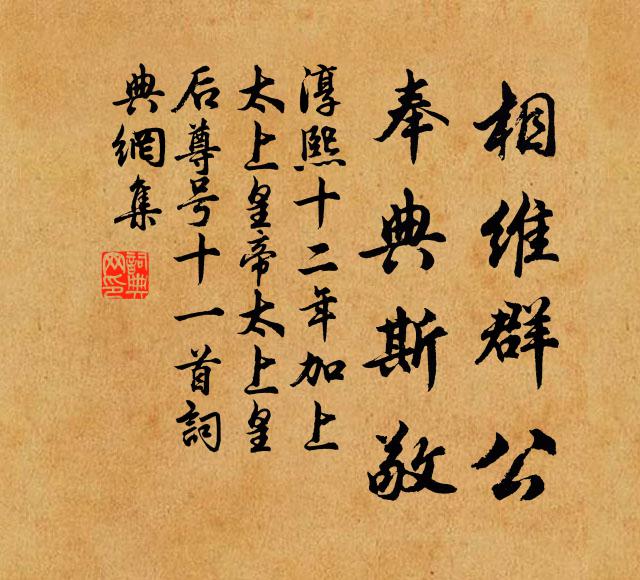 相維群公
奉典斯敬
淳熙十二年加上
太上皇帝太上皇
后尊号十一首詞
典網集
詞典網印